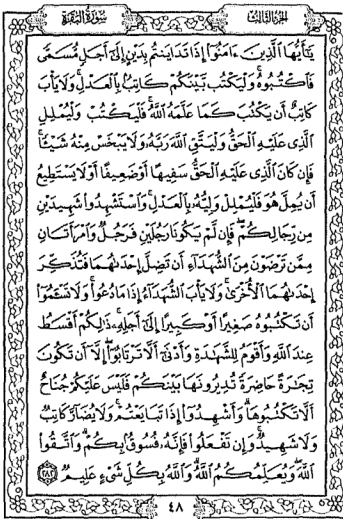 سُورَةُ البَقَرَةِ
الجُزْءُ الثَّالِثُ
يَٰٓأَيُّهَا ٱلَّذِينَ ءَامَنُوٓا۟ إِذَا تَدَايَنتُم بِدَيْنٍ إِلَىٰٓ أَجَلٍ مُّسَمًّى
فَٱكْتُبُوهُ ۚ وَلْيَكْتُب بَّيْنَكُمْ كَاتِبٌۢ بِٱلْعَدْلِ ۚ وَلَا يَأْبَ
كَاتِبٌ أَن يَكْتُبَ كَمَا عَلَّمَهُ ٱللَّهُ ۚ فَلْيَكْتُبْ وَلْيُمْلِلِ
ٱلَّذِى عَلَيْهِ ٱلْحَقُّ وَلْيَتَّقِ ٱللَّهَ رَبَّهُۥ وَلَا يَبْخَسْ مِنْهُ شَيْـًٔا ۚ
فَإِن كَانَ ٱلَّذِى عَلَيْهِ ٱلْحَقُّ سَفِيهًا أَوْ ضَعِيفًا أَوْ لَا يَسْتَطِيعُ
أَن يُمِلَّ هُوَ فَلْيُمْلِلْ وَلِيُّهُۥ بِٱلْعَدْلِ ۚ وَٱسْتَشْهِدُوا۟ شَهِيدَيْنِ
مِن رِّجَالِكُمْ ۖ فَإِن لَّمْ يَكُونَا رَجُلَيْنِ فَرَجُلٌ وَٱمْرَأَتَانِ
مِمَّن تَرْضَوْنَ مِنَ ٱلشُّهَدَآءِ أَن تَضِلَّ إِحْدَىٰهُمَا فَتُذَكِّرَ
إِحْدَىٰهُمَا ٱلْأُخْرَىٰ ۚ وَلَا يَأْبَ ٱلشُّهَدَآءُ إِذَا مَا دُعُوا۟ ۚ وَلَا تَسْـَٔمُوٓا۟
أَن تَكْتُبُوهُ صَغِيرًا أَوْ كَبِيرًا إِلَىٰٓ أَجَلِهِۦ ۚ ذَٰلِكُمْ أَقْسَطُ
عِندَ ٱللَّهِ وَأَقْوَمُ لِلشَّهَٰدَةِ وَأَدْنَىٰٓ أَلَّا تَرْتَابُوٓا۟ ۖ إِلَّآ أَن تَكُونَ
تِجَٰرَةً حَاضِرَةً تُدِيرُونَهَا بَيْنَكُمْ فَلَيْسَ عَلَيْكُمْ جُنَاحٌ
أَلَّا تَكْتُبُوهَا ۗ وَأَشْهِدُوٓا۟ إِذَا تَبَايَعْتُمْ ۚ وَلَا يُضَآرَّ كَاتِبٌ
وَلَا شَهِيدٌ ۚ وَإِن تَفْعَلُوا۟ فَإِنَّهُۥ فُسُوقٌۢ بِكُمْ ۗ وَٱتَّقُوا۟
ٱللَّهَ ۖ وَيُعَلِّمُكُمُ ٱللَّهُ ۗ وَٱللَّهُ بِكُلِّ شَىْءٍ عَلِيمٌ ٢٨٢
٤٨